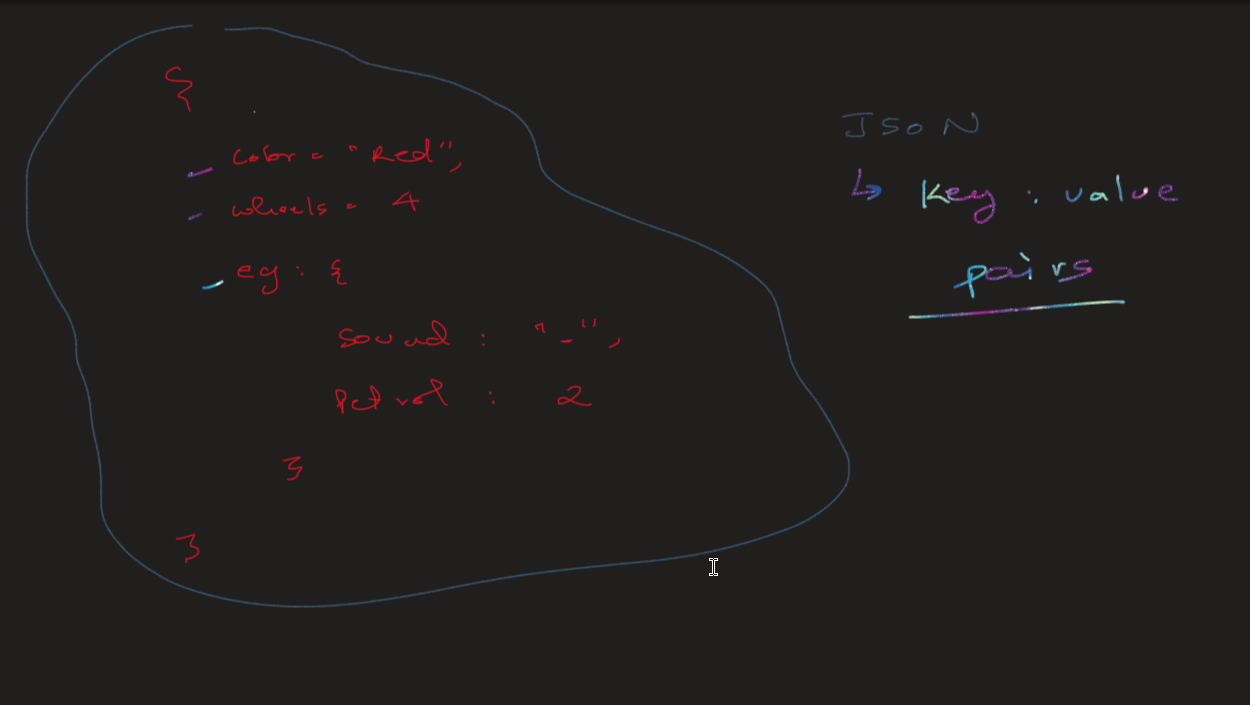 {
color = "Red",
wheels = 4
eg : {
sound : "-",
Petrol : 2
}
}
JSON
↳ Key : value
pairs